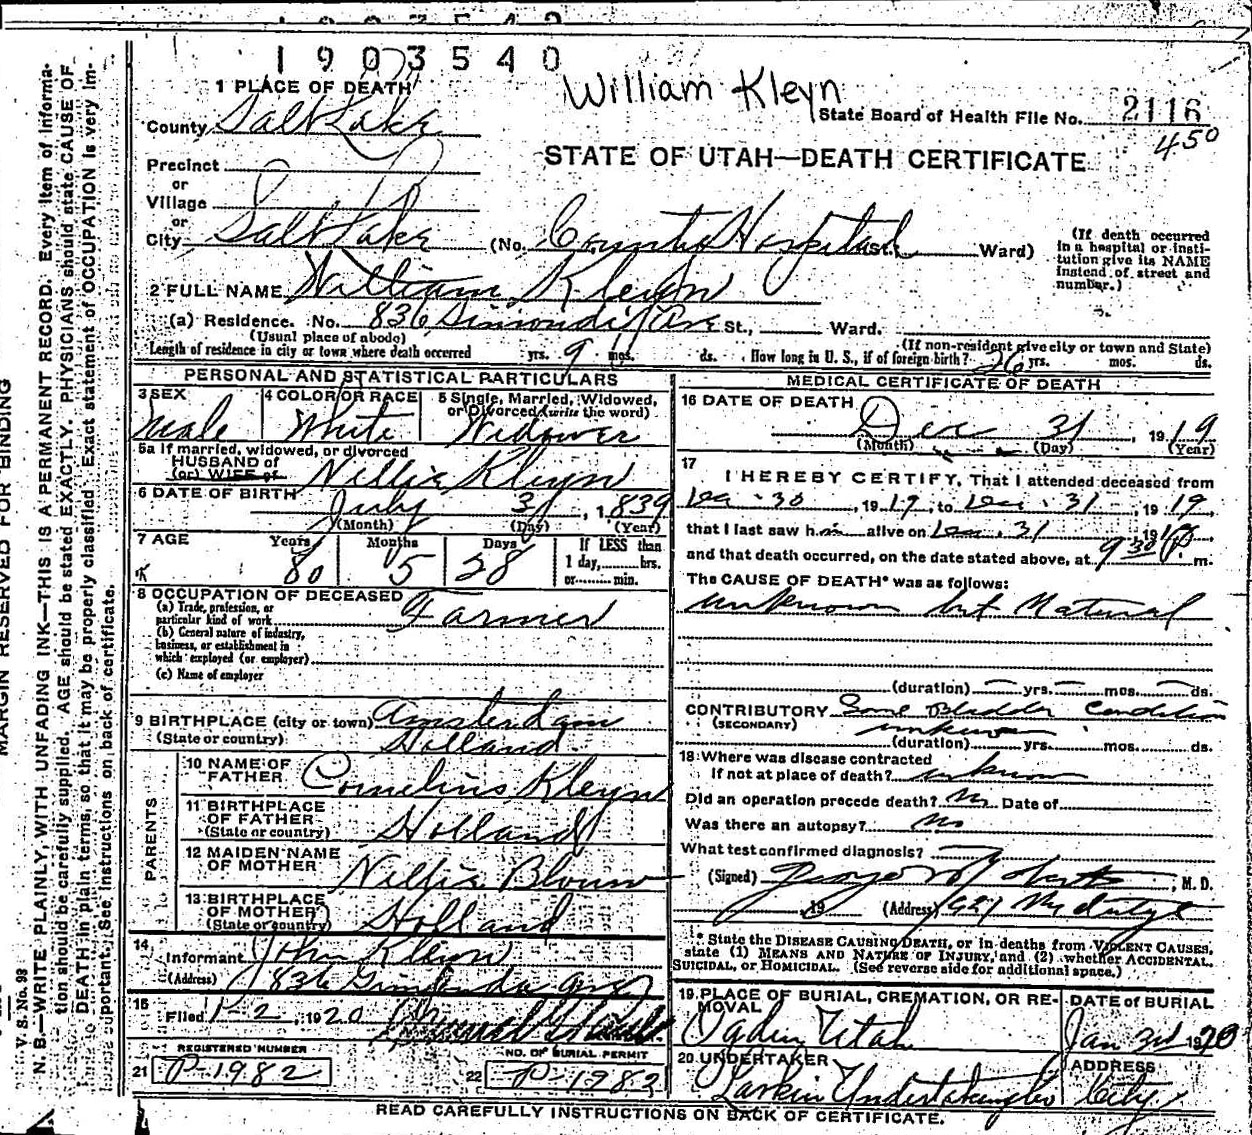 1903542
1903540
William Kleyn
1 PLACE OF DEATH
State Board of Health File No. 2116
450
County Salt Lake
STATE OF UTAH—DEATH CERTIFICATE
Precinct
or
Village
or
City Salt Lake (No. County Hospital St. Ward)
(If death occurred in a hospital or institution give its NAME instead of street and number.)
2 FULL NAME William Kleyn
(a) Residence. No. 836 Ave St., Ward.
(Usual place of abode) (If non-resident give city or town and State)
Length of residence in city or town where death occurred yrs. 9 mos. ds. How long in U. S., if of foreign birth? 26 yrs. mos. ds.
PERSONAL AND STATISTICAL PARTICULARS
3 SEX Male
4 COLOR OR RACE White
5 Single, Married, Widowed, or Divorced (write the word) Widower
5a If married, widowed, or divorced
HUSBAND of
(or) WIFE of Nellie Kleyn
6 DATE OF BIRTH July 3, 1839
(Month) (Day) (Year)
7 AGE Years 80 Months 5 Days 28 If LESS than 1 day, hrs. or min.
8 OCCUPATION OF DECEASED
(a) Trade, profession, or particular kind of work Farmer
(b) General nature of industry, business, or establishment in which employed (or employer)
(c) Name of employer
9 BIRTHPLACE (city or town) Amsterdam
(State or country) Holland
PARENTS
10 NAME OF FATHER Cornelius Kleyn
11 BIRTHPLACE OF FATHER (State or country) Holland
12 MAIDEN NAME OF MOTHER Nellie Blouw
13 BIRTHPLACE OF MOTHER (State or country) Holland
14 Informant John Kleyn
(Address) 836 Ave
15 Filed 1-2, 1920
REGISTERED NUMBER
21 P-1982
NO. OF BURIAL PERMIT
22 P-1982
MEDICAL CERTIFICATE OF DEATH
16 DATE OF DEATH Dec 31, 1919
(Month) (Day) (Year)
17 I HEREBY CERTIFY, That I attended deceased from
Dec. 30, 1919, to Dec. 31, 1919,
that I last saw him alive on Dec. 31 19
and that death occurred, on the date stated above, at 9 30 P. m.
The CAUSE OF DEATH* was as follows:
unknown but Natural
(duration) yrs. mos. ds.
CONTRIBUTORY Some Bladder Condition
(SECONDARY) unknown
(duration) yrs. mos. ds.
18 Where was disease contracted
If not at place of death? unknown
Did an operation precede death? No Date of
Was there an autopsy? No
What test confirmed diagnosis?
(Signed) George Roberts, M. D.
19 (Address)
* State the DISEASE CAUSING DEATH, or in deaths from VIOLENT CAUSES, state (1) MEANS AND NATURE OF INJURY, and (2) whether ACCIDENTAL, SUICIDAL, or HOMICIDAL. (See reverse side for additional space.)
19 PLACE OF BURIAL, CREMATION, OR REMOVAL Ogden Utah
DATE of BURIAL Jan 3rd 1920
20 UNDERTAKER Larkin Undertaking Co
ADDRESS City
READ CAREFULLY INSTRUCTIONS ON BACK OF CERTIFICATE.
MARGIN RESERVED FOR BINDING
V. S. No. 98
N. B.—WRITE PLAINLY, WITH UNFADING INK—THIS IS A PERMANENT RECORD. Every item of information should be carefully supplied. AGE should be stated EXACTLY. PHYSICIANS should state CAUSE OF DEATH in plain terms, so that it may be properly classified. Exact statement of OCCUPATION is very important. See instructions on back of certificate.